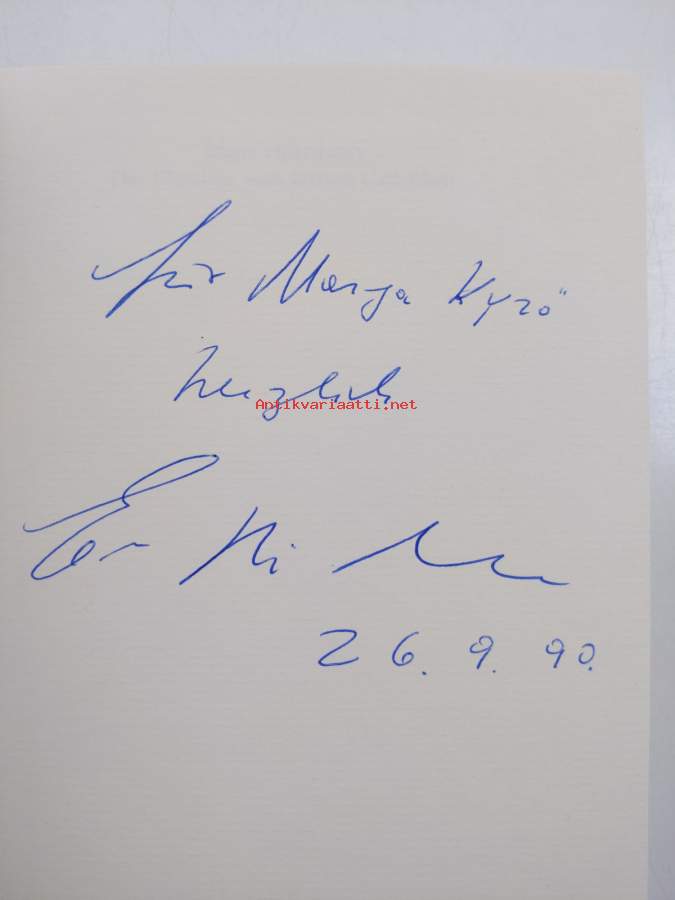 für Marja Kyrö
herzlich
Antikvariaatti.net
26. 9. 90.